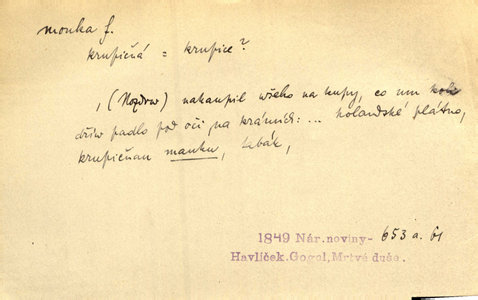 mouka f.
krupičná = krupice?
, (Nozdrev) nakaupil wšeho na kupy, co mu
dřiw padlo pod oči na krámích: ... holandské plátno,
krupičnau mauku, tabák,
1849 Nár. noviny - 653 a. b1
Havlíček. Gogol, Mrtvé duše.